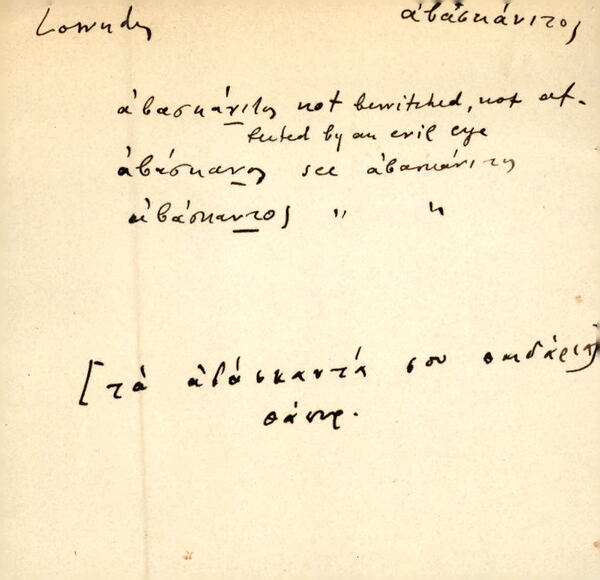 Lowndes ἀβασκάνιτος
ἀβασκάνιτος not bewitched, not af-
fected by an evil eye
ἀβάσκανος see ἀβασκάνιτος
ἀβάσκαντος " "
[τὰ ἀβάσκαντά σου